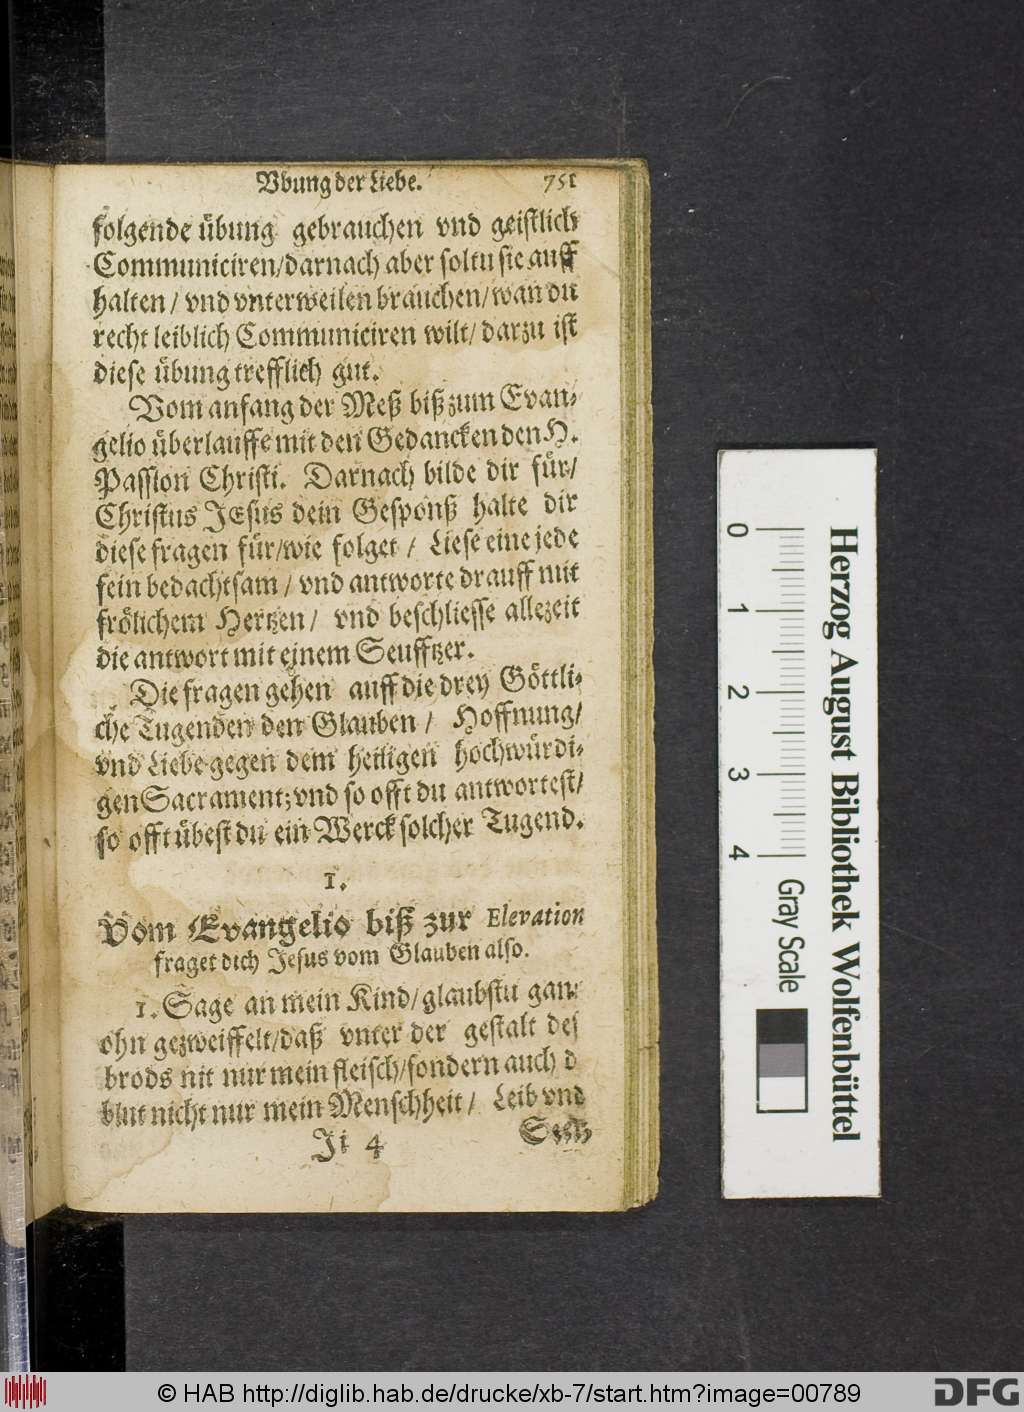 Vbung der Liebe. 751
folgende übung gebrauchen vnd geistlich
Communiciren/darnach aber soltu sie auff
halten / vnd vnterweilen brauchen/wan du
recht leiblich Communiciren wilt/ darzu ist
diese übung trefflich gut.
Vom anfang der Meß biß zum Evan-
gelio überlauffe mit den Gedancken den H.
Passion Christi. Darnach bilde dir für/
Christus JEsus dein Gesponß halte dir
diese fragen für/wie folget / Liese eine jede
fein bedachtsam / vnd antworte drauff mit
frölichem Hertzen / vnd beschliesse allezeit
die antwort mit einem Seufftzer.
Die fragen gehen auff die drey Göttli-
che Tugenden den Glauben / Hoffnung/
vnd Liebe gegen dem heiligen hochwürdi-
gen Sacrament; vnd so offt du antwortest/
so offt übest du ein Werck solcher Tugend.
1.
Vom Evangelio biß zur Elevation
fraget dich Jesus vom Glauben also.
1. Sage an mein Kind/glaubstu gan
ohn gezweiffelt/daß vnter der gestalt des
brods nit nur mein fleisch/sondern auch
blut nicht nur mein Menschheit / Leib vnd
Ji 4
0 1 2 3 4 Gray Scale
Herzog August Bibliothek Wolfenbüttel
© HAB http://diglib.hab.de/drucke/xb-7/start.htm?image=00789
DFG